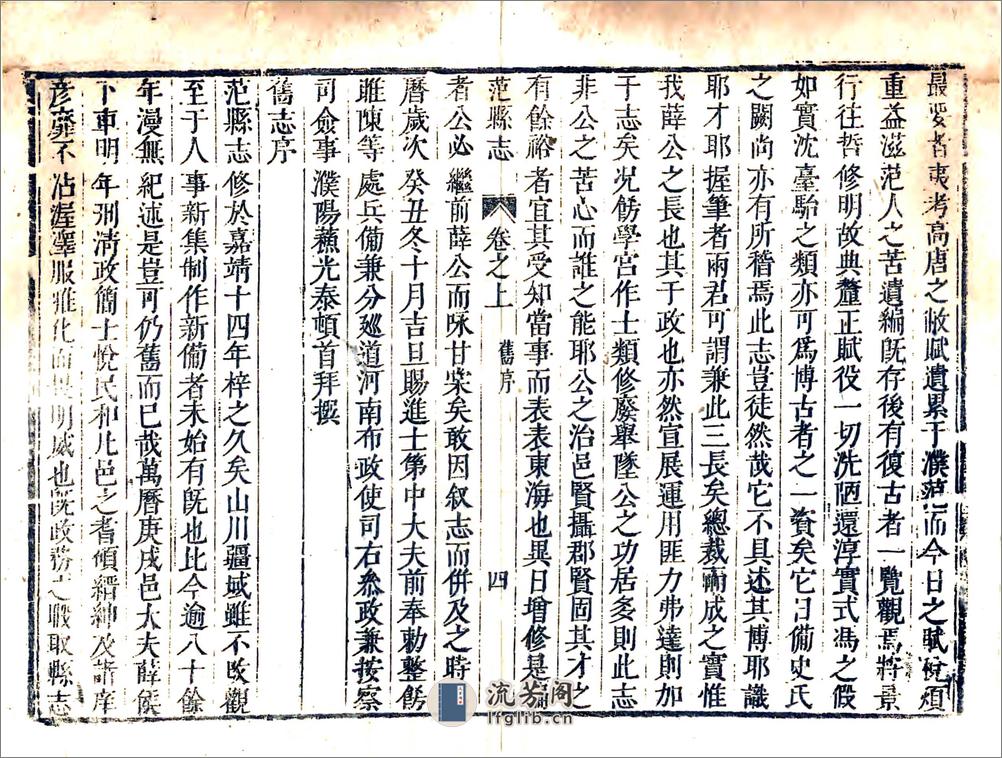 最要者夷考高唐之收賦遺累于濮范而今日之賦稅煩
重益滋范人之苦遺編旣存後有復古者一覽觀焉將景
行往哲修明故典釐正賦役一切洗陋還淳實式馮之假
如實沈臺駘之類亦可爲博古者之一資矣它日備史氏
之闕尚亦有所稽焉此志豈徒然哉它不具述其博耶識
耶才耶握筆者兩君可謂兼此三長矣總裁而成之實惟
我薛公之長也其于政也亦然宣展運用匪力弗達則加
于志矣况餝學宮作士類修廢舉墜公之功居多則此志
非公之苦心而誰之能耶公之治邑賢攝郡賢固其才之
有餘裕者宜其受知當事而表表東海也異日增修是編
范縣志 卷之上 舊序 四
者公必繼前薛公而咏甘棠矣敢因叙志而併及之時
曆歲次癸丑冬十月吉旦賜進士第中大夫前奉勅整餝
睢陳等處兵備兼分廵道河南布政使司右叅政兼按察
司僉事濮陽蘓光泰頓首拜撰
舊志序
范縣志修於嘉靖十四年梓之久矣山川疆域雖不改觀
至于人事新集制作新備者未始有旣也比今逾八十餘
年漫無紀述是豈可仍舊而已哉萬曆庚戌邑大夫薛侯
下車明年刑清政簡士悅民和凡邑之耆碩縉紳及諸庠
彦靡不沾渥澤服雅化而畏明威也旣政務之暇取縣志
流芳閣
lfglib.cn